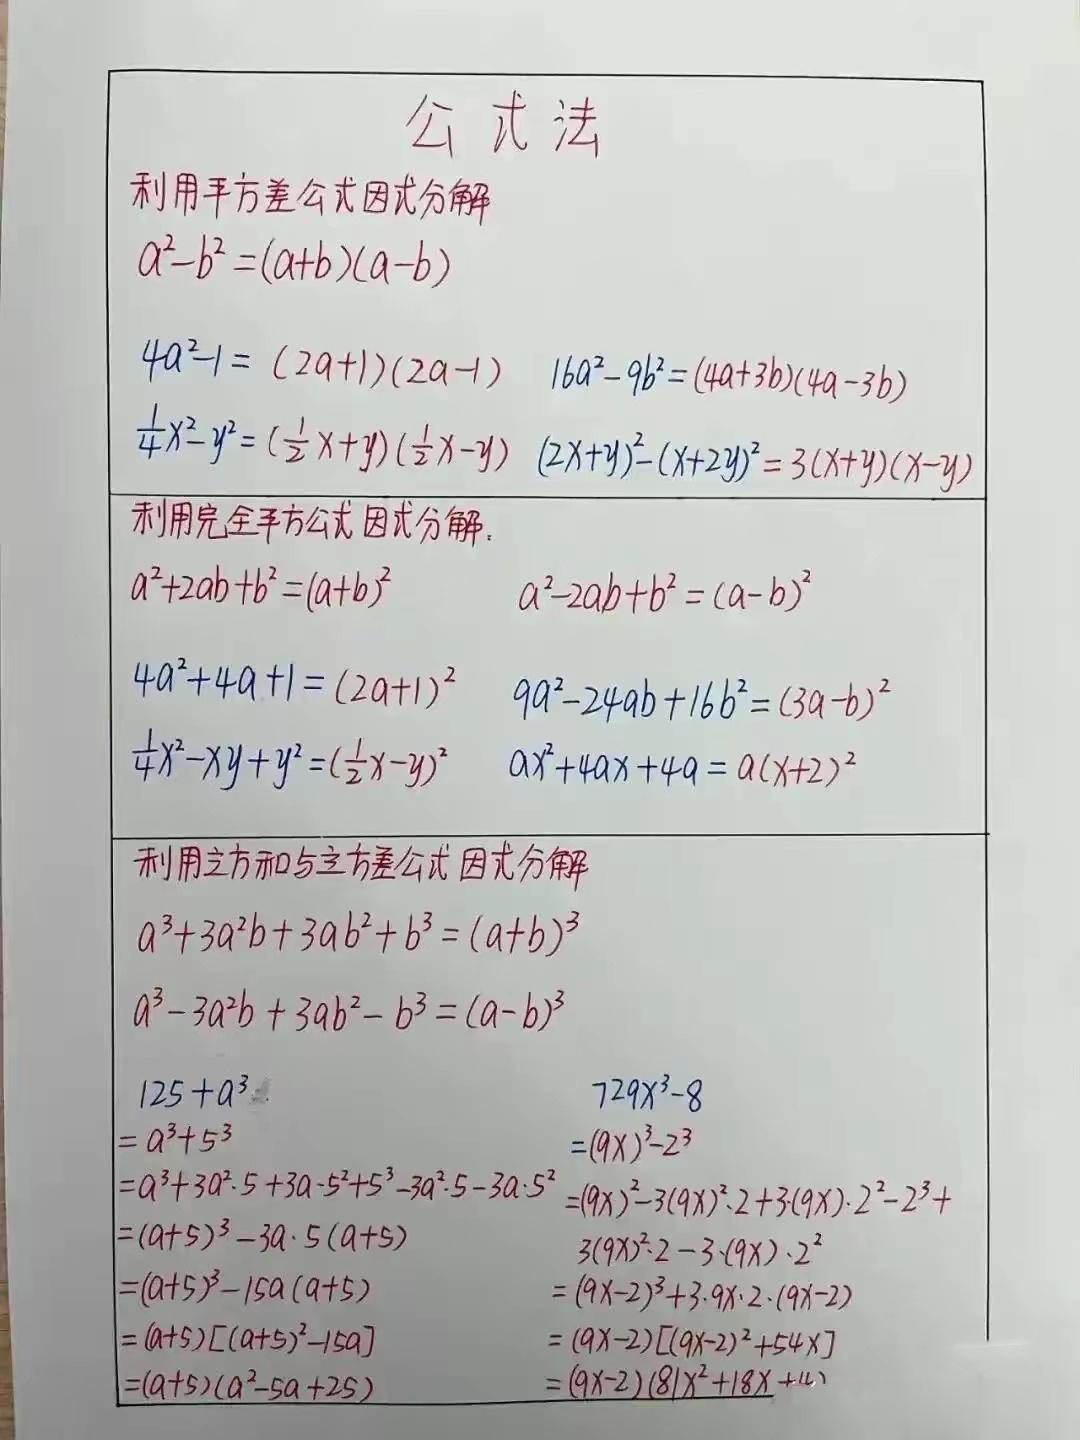 公式法
利用平方差公式因式分解
a²-b²=(a+b)(a-b)
4a²-1=(2a+1)(2a-1) 16a²-9b²=(4a+3b)(4a-3b)
1/4x²-y²=(1/2x+y)(1/2x-y) (2x+y)²-(x+2y)²=3(x+y)(x-y)
利用完全平方公式因式分解.
a²+2ab+b²=(a+b)² a²-2ab+b²=(a-b)²
4a²+4a+1=(2a+1)² 9a²-24ab+16b²=(3a-b)²
1/4x²-xy+y²=(1/2x-y)² ax²+4ax+4a=a(x+2)²
利用立方和与立方差公式因式分解
a³+3a²b+3ab²+b³=(a+b)³
a³-3a²b+3ab²-b³=(a-b)³
125+a³
=a³+5³
=a³+3a²·5+3a·5²+5³-3a²·5-3a·5²
=(a+5)³-3a·5(a+5)
=(a+5)³-15a(a+5)
=(a+5)[(a+5)²-15a]
=(a+5)(a²-5a+25)
729x³-8
=(9x)³-2³
=(9x)²-3(9x)²·2+3·(9x)·2²-2³+
3(9x)²·2-3·(9x)·2²
=(9x-2)³+3·9x·2·(9x-2)
=(9x-2)[(9x-2)²+54x]
=(9x-2)(81x²+18x+4)